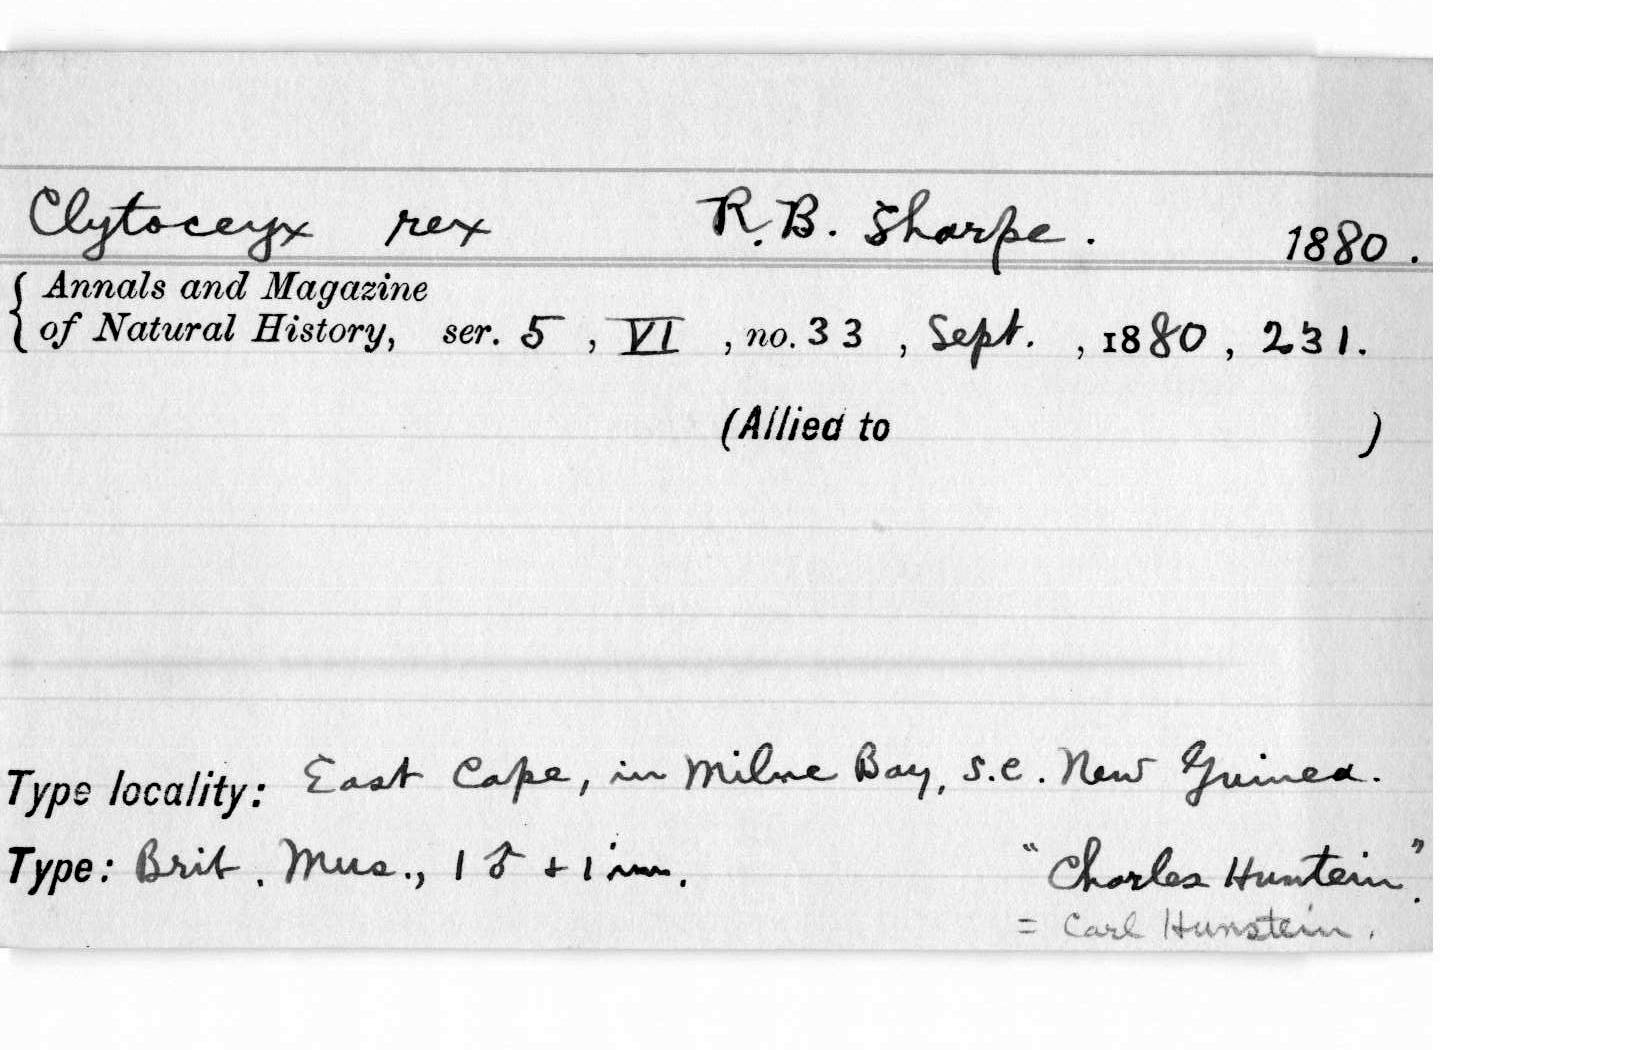 Clytoceyx rex R.B. Sharpe. 1880.
{ Annals and Magazine
of Natural History, ser. 5, VI, no. 33, Sept., 1880, 231.
(Allied to )
Type locality: East Cape, in Milne Bay, S.e. New Guinea.
Type: Brit. Mus., 1 ♂ + 1 imm. "Charles Huntein".
= Carl Hunstein.